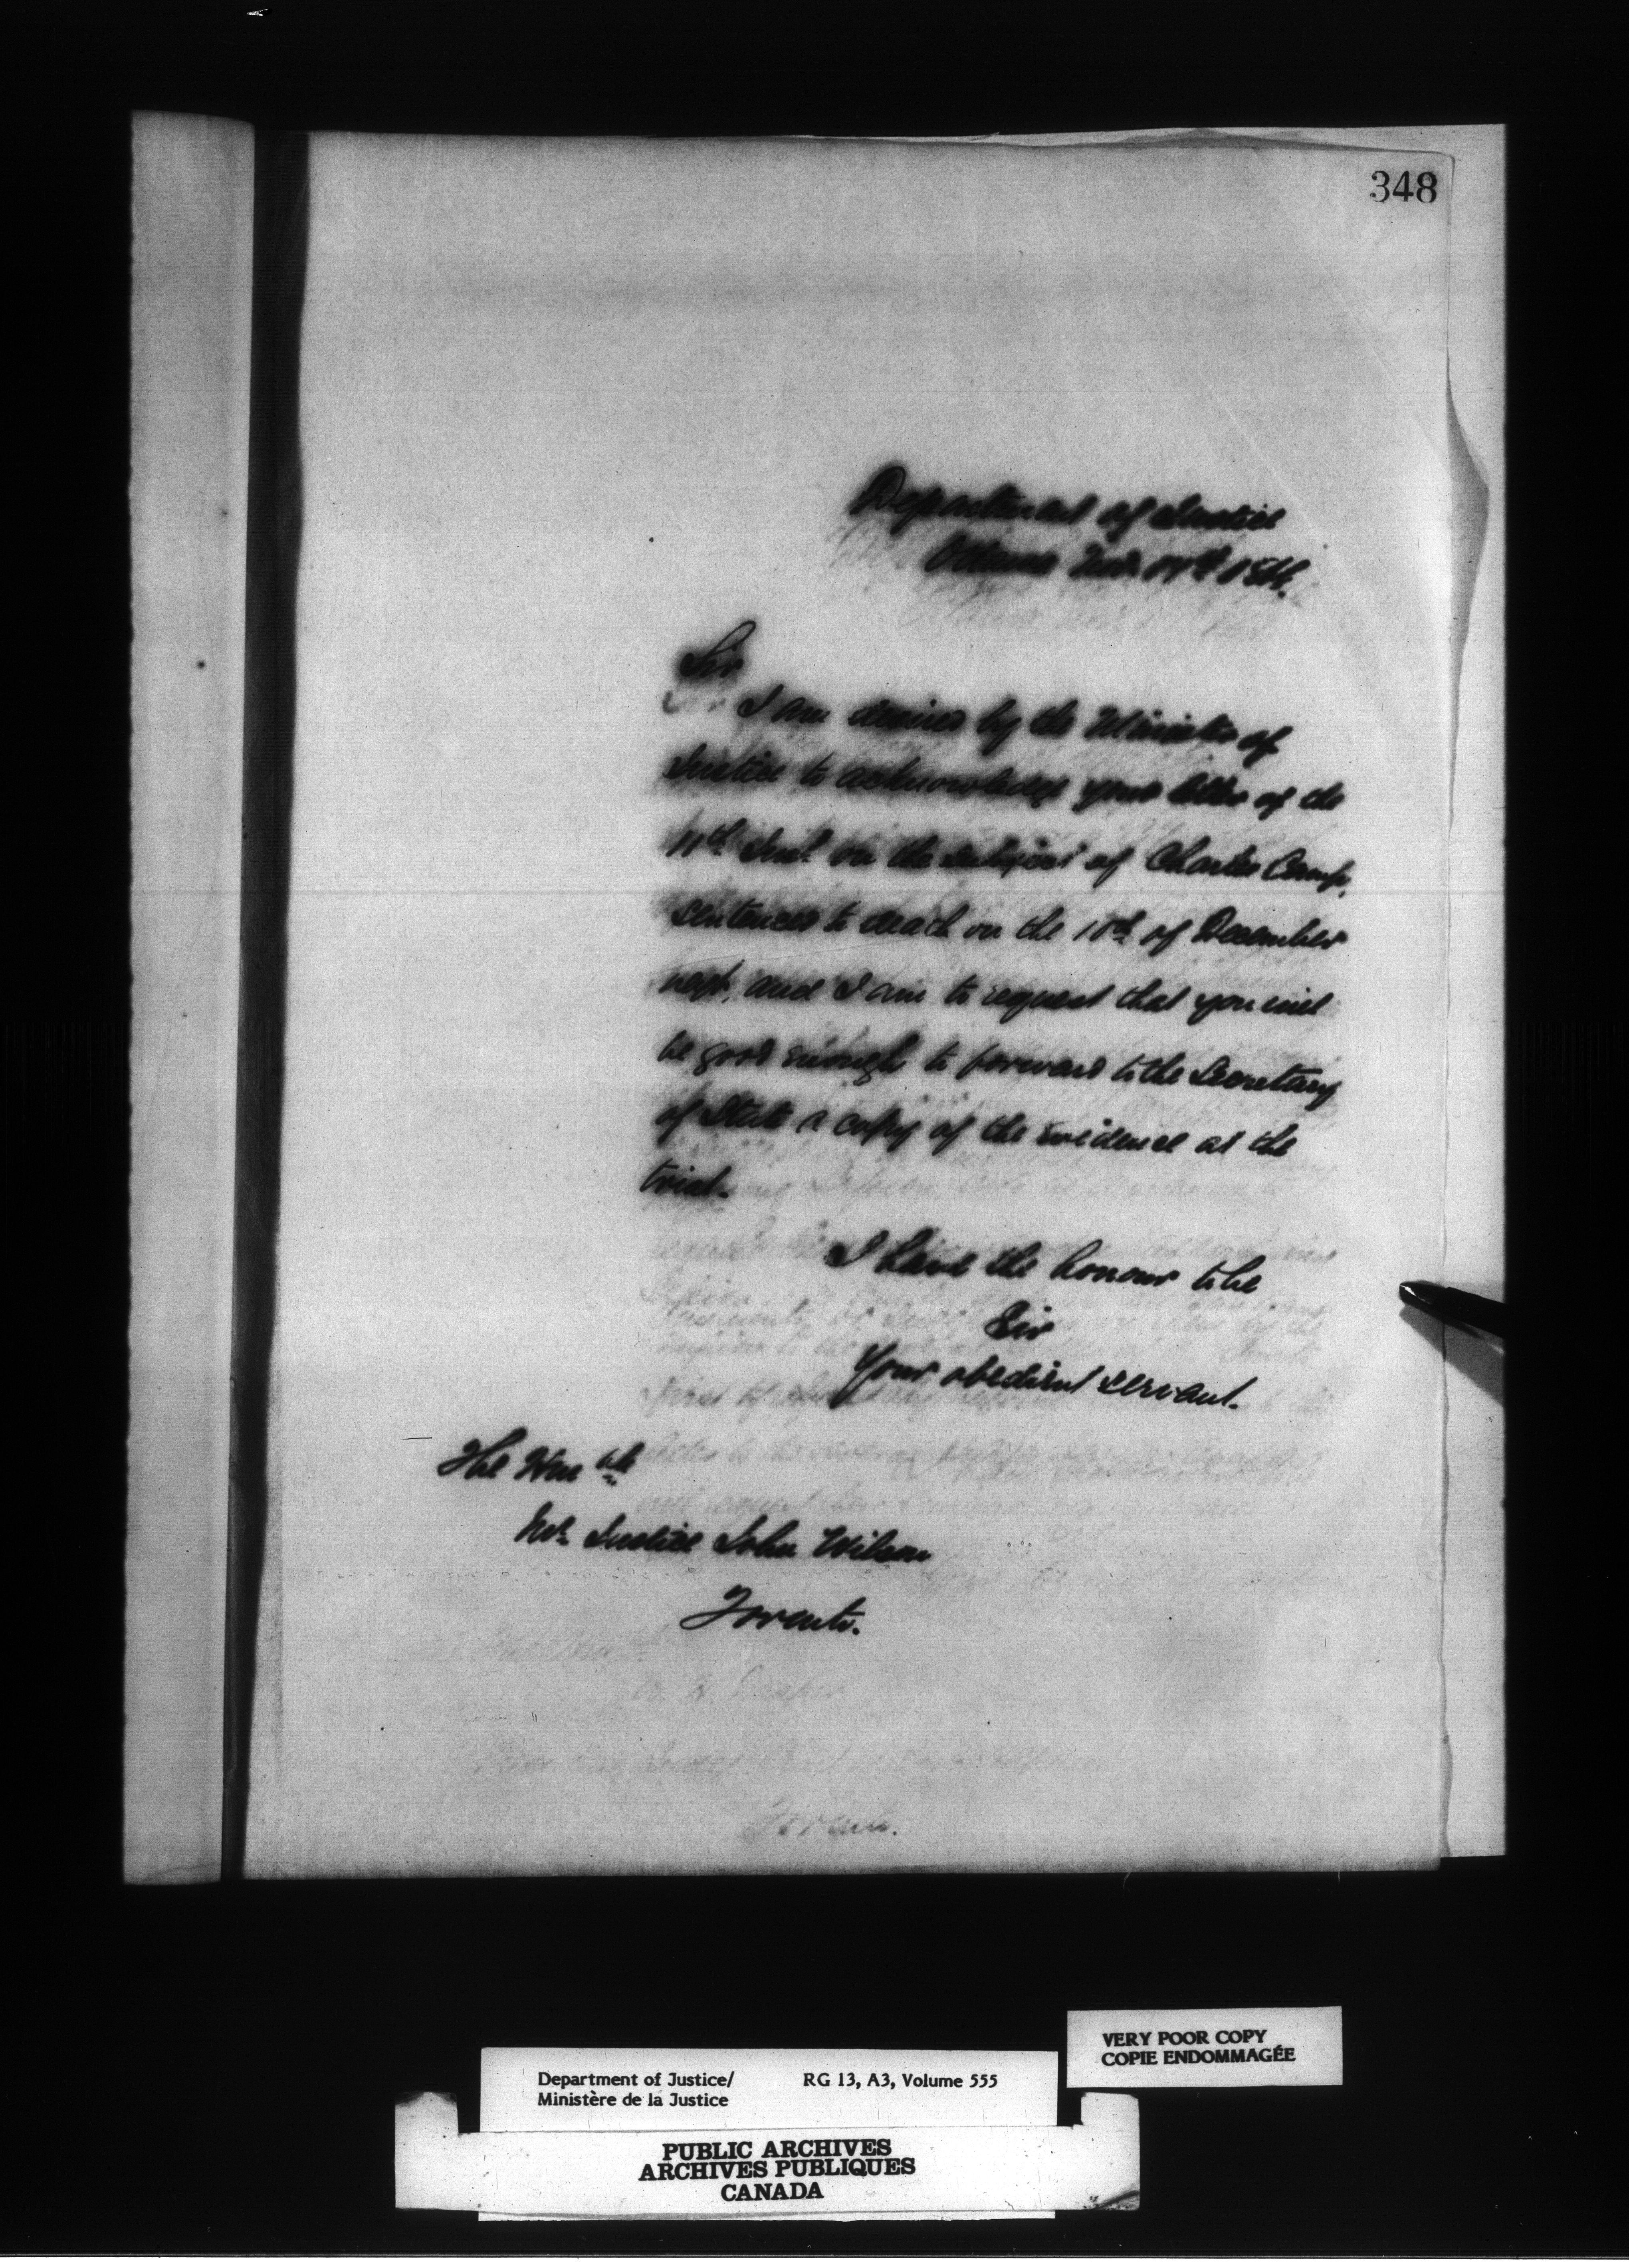 348
Department of Justice
Ottawa Nov. 14th 1868.
Sir
I am desired by the Minister of
Justice to acknowledge your letter of the
11th Inst. on the subject of Charles Camp,
sentenced to death on the 10th of December
next, and I am to request that you will
be good enough to forward to the Secretary
of State a copy of the evidence at the
trial.
I have the honour to be
Sir
Your obedient servant.
The Hon ble
Mr. Justice John Wilson
Toronto.
VERY POOR COPY
COPIE ENDOMMAGÉE
Department of Justice/ RG 13, A3, Volume 555
Ministère de la Justice
PUBLIC ARCHIVES
ARCHIVES PUBLIQUES
CANADA